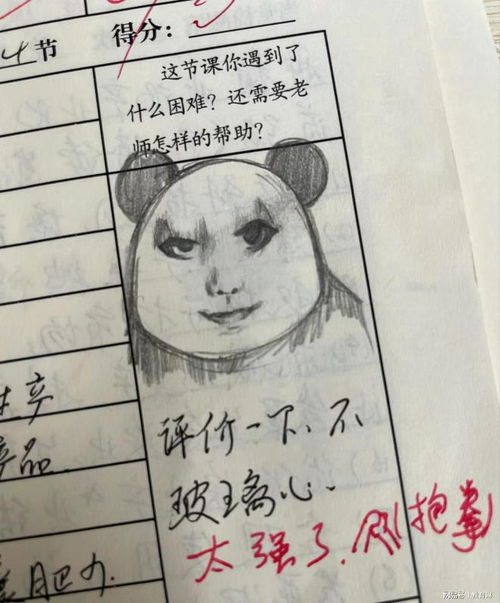 4节 得分:
这节课你遇到了
什么困难?还需要老
师怎样的帮助?
评价一下、不
玻璃心.
太强了.(抱拳)
产品.
肥力.